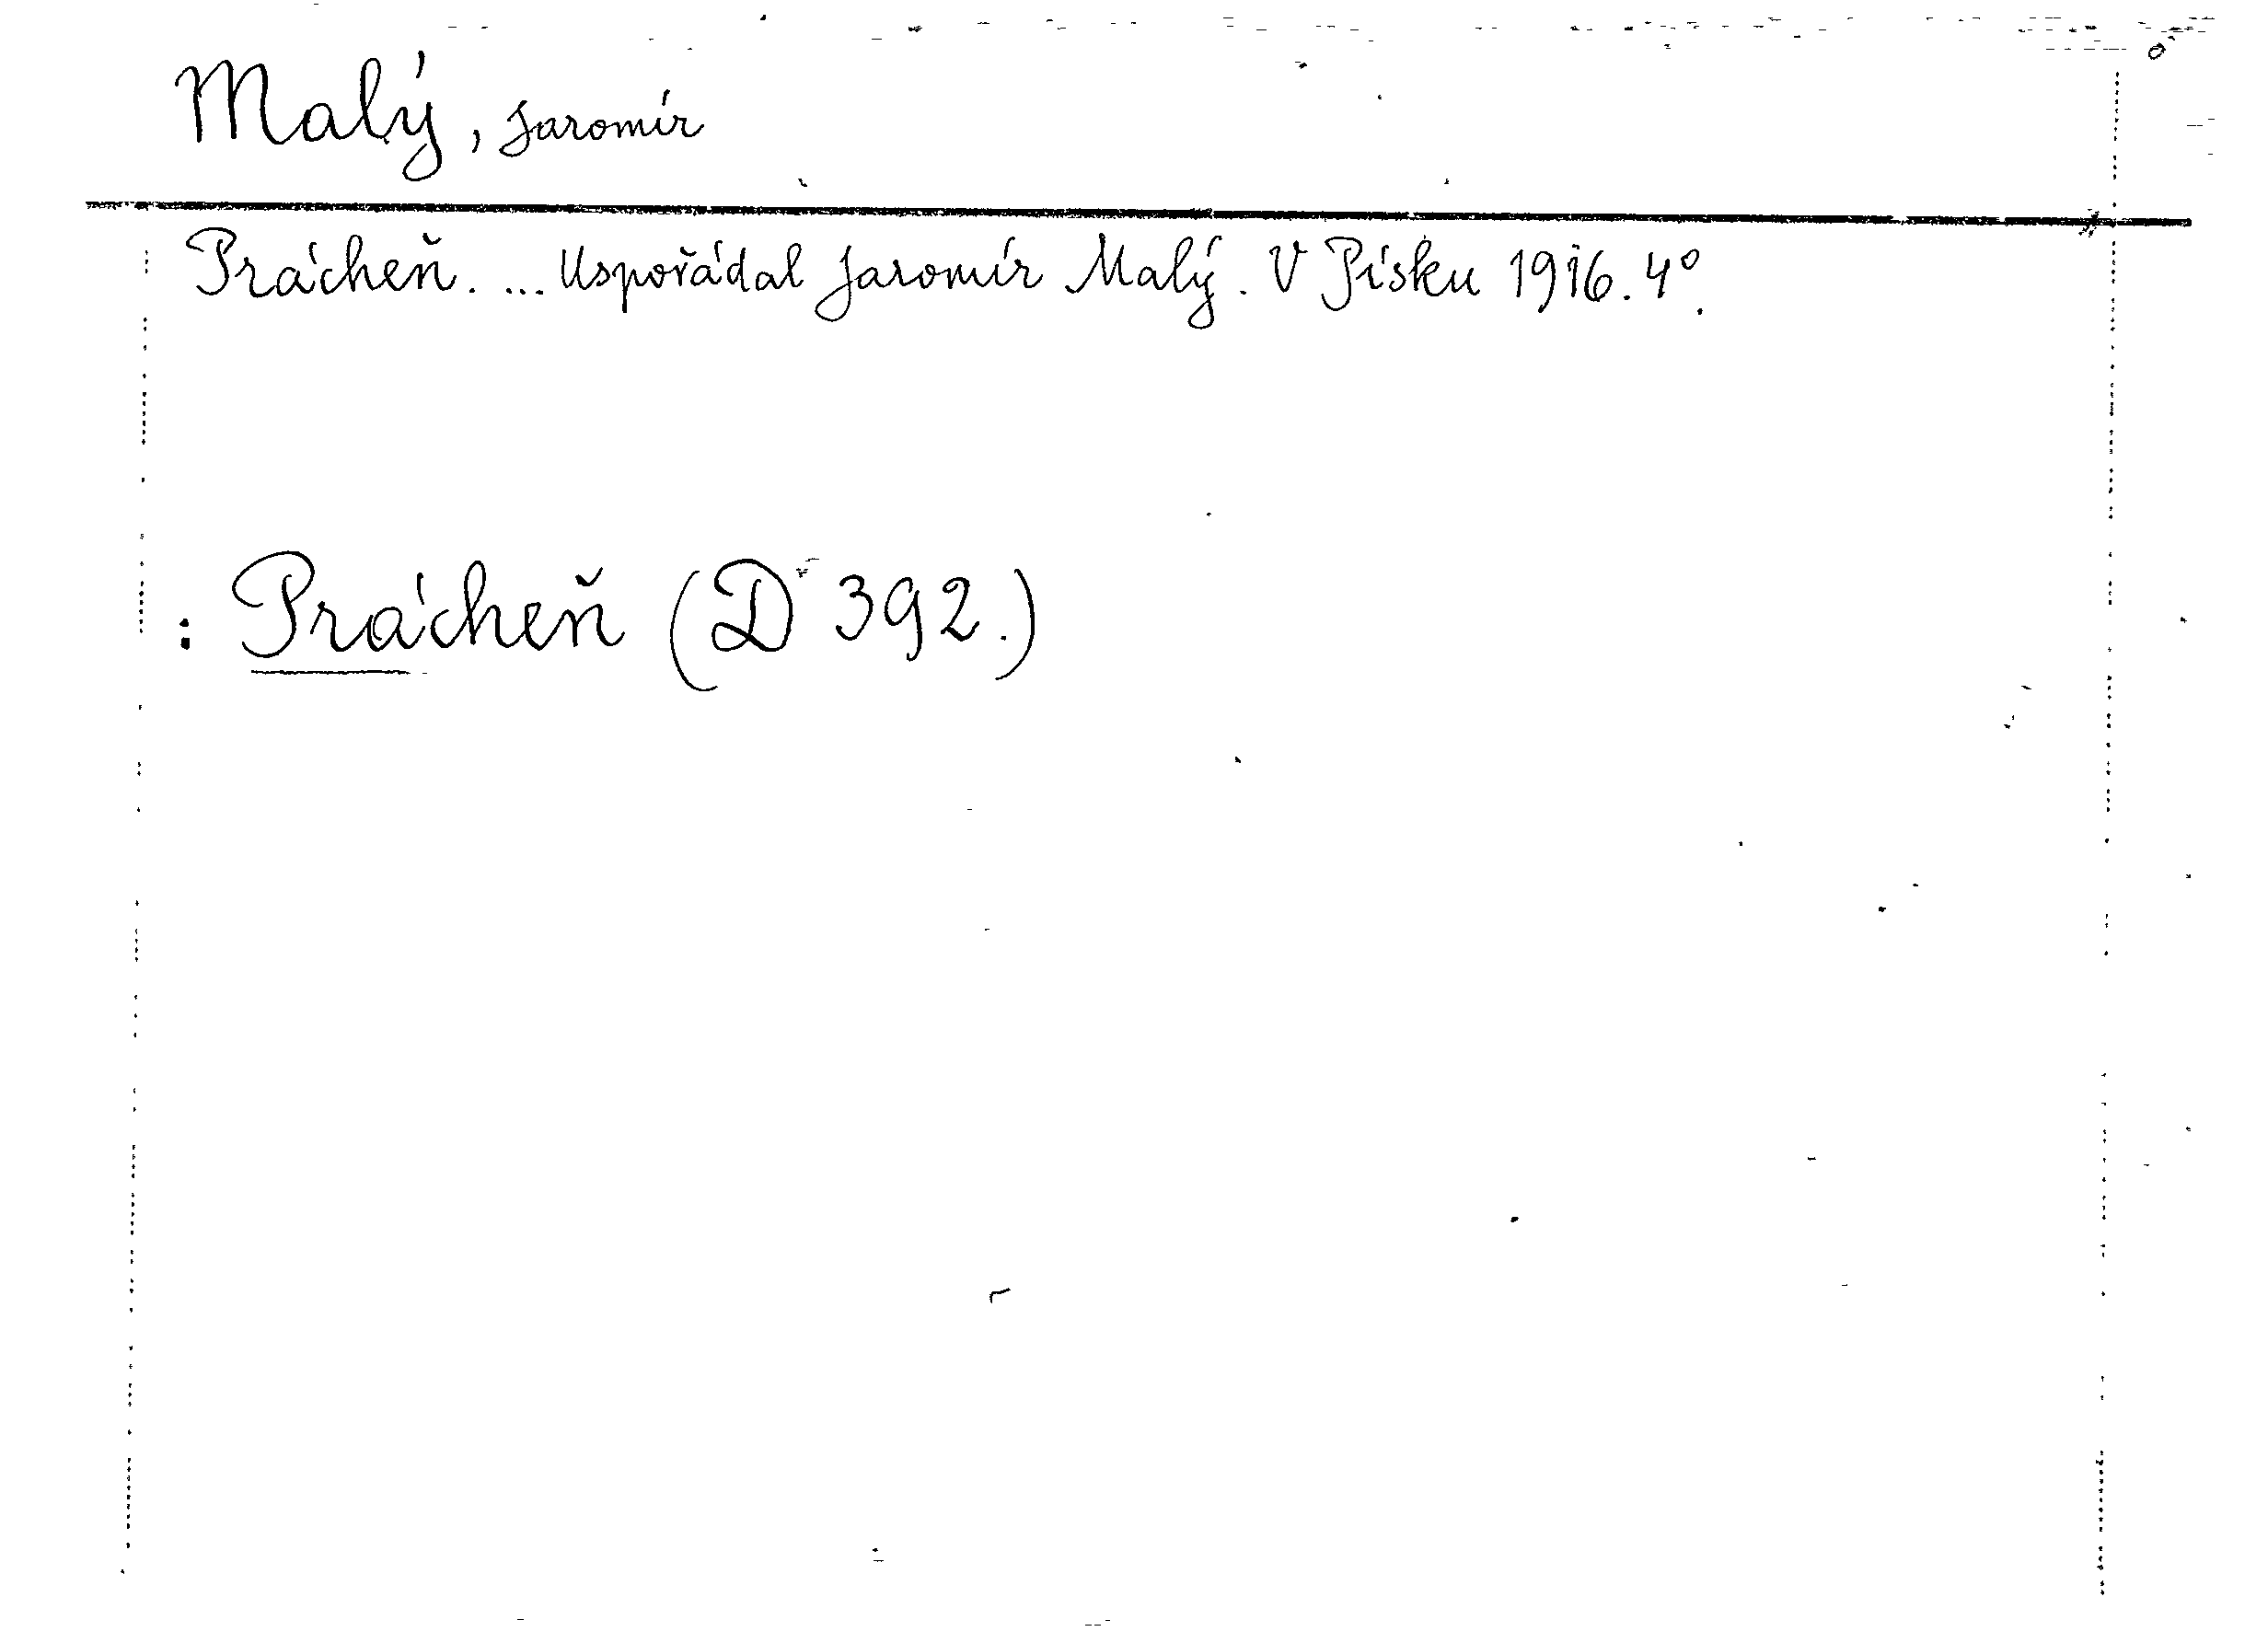 Malý, Jaromír
Prácheň. ... Uspořádal Jaromír Malý. V Písku 1916. 4º.
: Prácheň (D 392.)